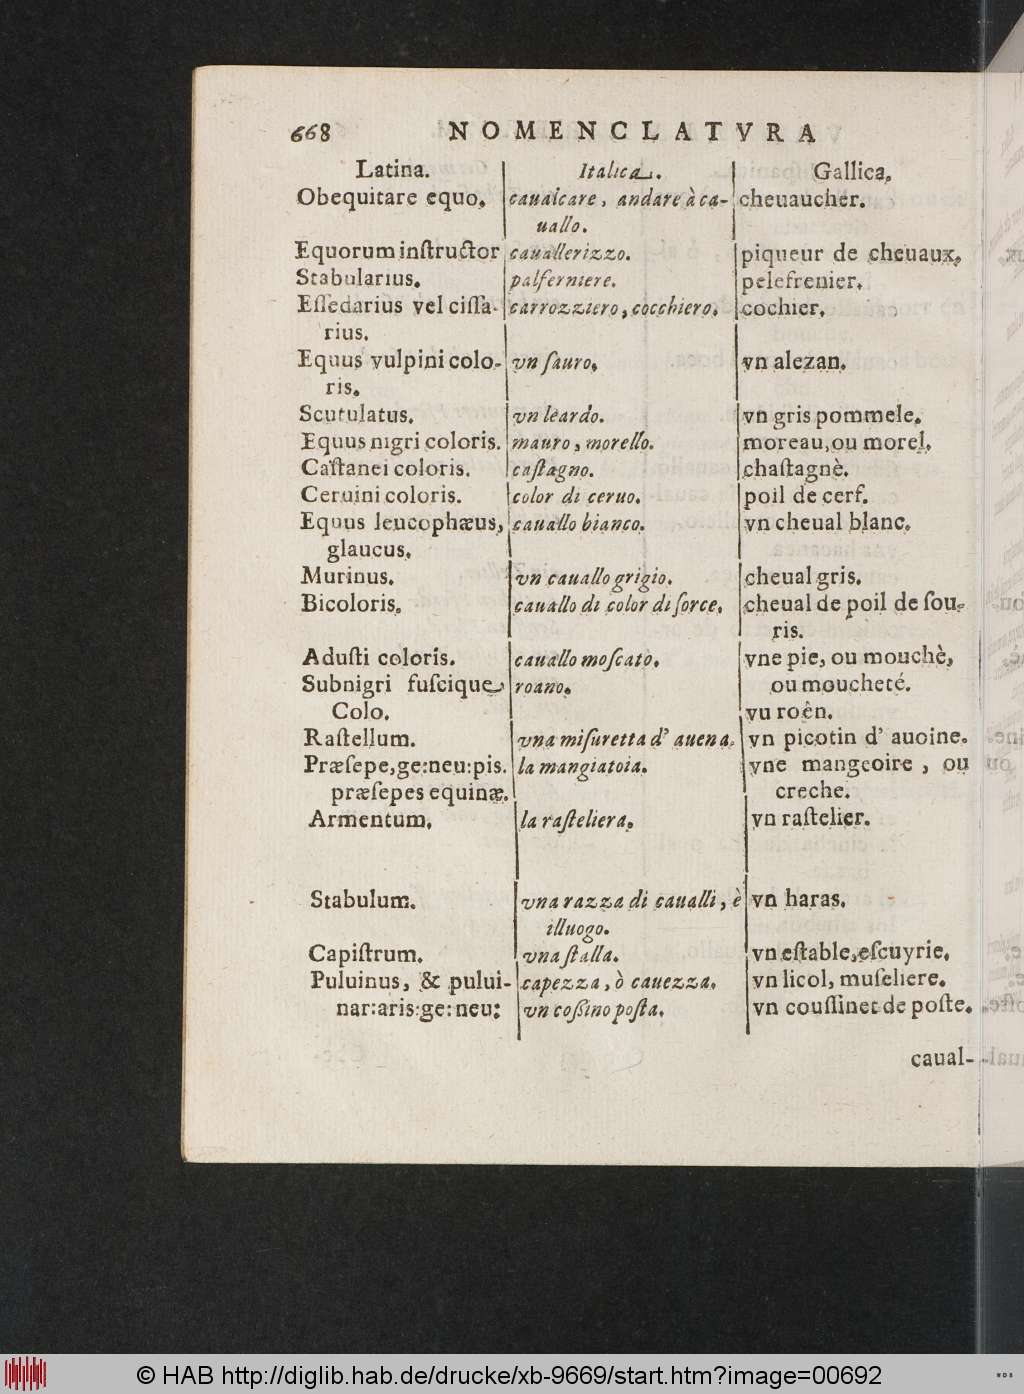 668 NOMENCLATVRA
Latina. Italica. Gallica.
Obequitare equo. caualcare, andare à ca- cheuaucher.
uallo.
Equorum inſtructor cauallerizzo. piqueur de cheuaux.
Stabularius. palferniere. pelefrenier.
Eſſedarius vel ciſſa- carrozziero, cocchiero. cochier.
rius.
Equus vulpini colo- vn ſauro. vn alezan.
ris.
Scutulatus. vn leardo. vn gris pommele.
Equus nigri coloris. mauro, morello. moreau, ou morel.
Caſtanei coloris. caſtagno. chaſtagnè.
Ceruini coloris. color di ceruo. poil de cerf.
Equus leucophæus, cauallo bianco. vn cheual blanc.
glaucus.
Murinus. vn cauallo grigio. cheual gris.
Bicoloris. cauallo di color di ſorce. cheual de poil de ſou-
ris.
Aduſti coloris. cauallo moſcato. vne pie, ou mouchè,
Subnigri fuſcique roano. ou moucheté.
Colo. vu roên.
Raſtellum. vna miſuretta d' auena. vn picotin d' auoine.
Præſepe,ge:neu:pis. la mangiatoia. vne mangeoire, ou
præſepes equinæ. creche.
Armentum. la raſteliera. vn raſtelier.
Stabulum. vna razza di caualli, è vn haras.
illuogo.
Capiſtrum. vna ſtalla. vn eſtable, eſcuyrie.
Puluinus, & pului- capezza, ò cauezza. vn licol, muſeliere.
nar:aris:ge:neu: vn coſſino poſta. vn couſſinet de poſte.
caual-
© HAB http://diglib.hab.de/drucke/xb-9669/start.htm?image=00692